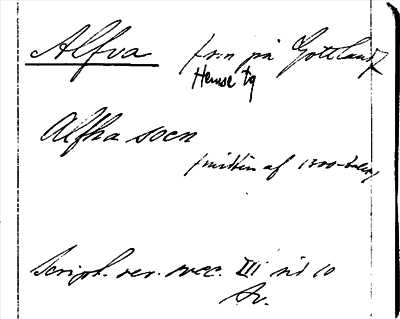 Alfva fsn på Gottland
Hemse tg
Alfha socn
(midten af 1300-talet)
Script. rer. svec. III sid 10